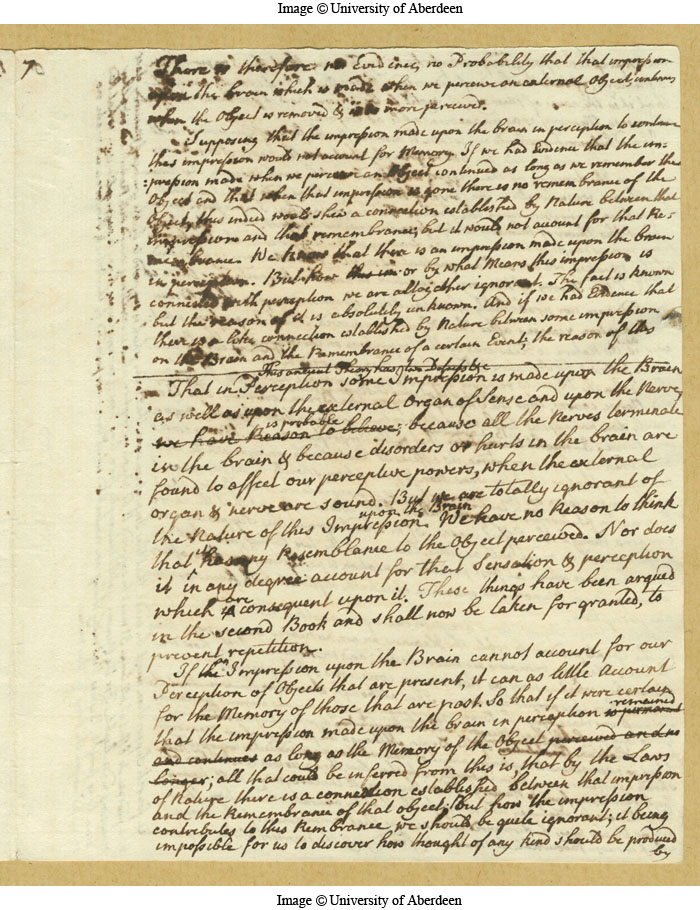 Image © University of Aberdeen
7
There is therefore no Evidence, no Probability that that impression
upon the brain which is made when we perceive an external Object, continues
when the Object is removed & is no more perceived.
Supposing that the impression made upon the brain in perception to continue
this impression would not account for Memory. If we had Evidence that the im-
:pression made when we perceive an Object continued as long as we remember the
Object and that when that impression is gone there is no remembrance of the
Object, this indeed would shew a connection established by Nature between that
impression and that remembrance; but it would not account for that Re-
membrance. We know that there is an impression made upon the brain
in perception. But how this im or by what Means this impression is
connected with perception we are altogether ignorant. The fact is known
but the reason of it is absolutely unknown. And if we had Evidence that
there is a like connection established by Nature between some impression
on the Brain and the Remembrance of a certain Event; the reason of this
This antient Theory has two Defects
That in Perception some Impression is made upon the Brain
as well as upon the external Organ of Sense and upon the Nerve,
is probable
we have Reason to believe; because all the Nerves terminate
in the brain & because disorders or hurts in the brain are
found to affect our perceptive powers, when the external
organ & nerve are sound. But we are totally ignorant of
upon the Brain
the Nature of this Impression. We have no Reason to think
that it has any Resemblance to the Object perceived. Nor does
it in any degree account for that Sensation & perception
are
which is consequent upon it. These things have been argued
in the second Book and shall now be taken for granted, to
prevent repetition.
If the Impression upon the Brain cannot account for our
Perception of Objects that are present, it can as little Account
for the Memory of those that are past. So that if it were certain
remained
that the impression made upon the brain in perception is permanent
and continues as long as the Memory of the Object perceived and no
longer; all that could be inferred from this is, that by the Laws
of Nature there is a connection established between that impression
and the Remembrance of that object; But how the impression
contributes to this Remembrance we should be quite ignorant; it being
impossible for us to discover how thought of any kind should be produced
by
Image © University of Aberdeen